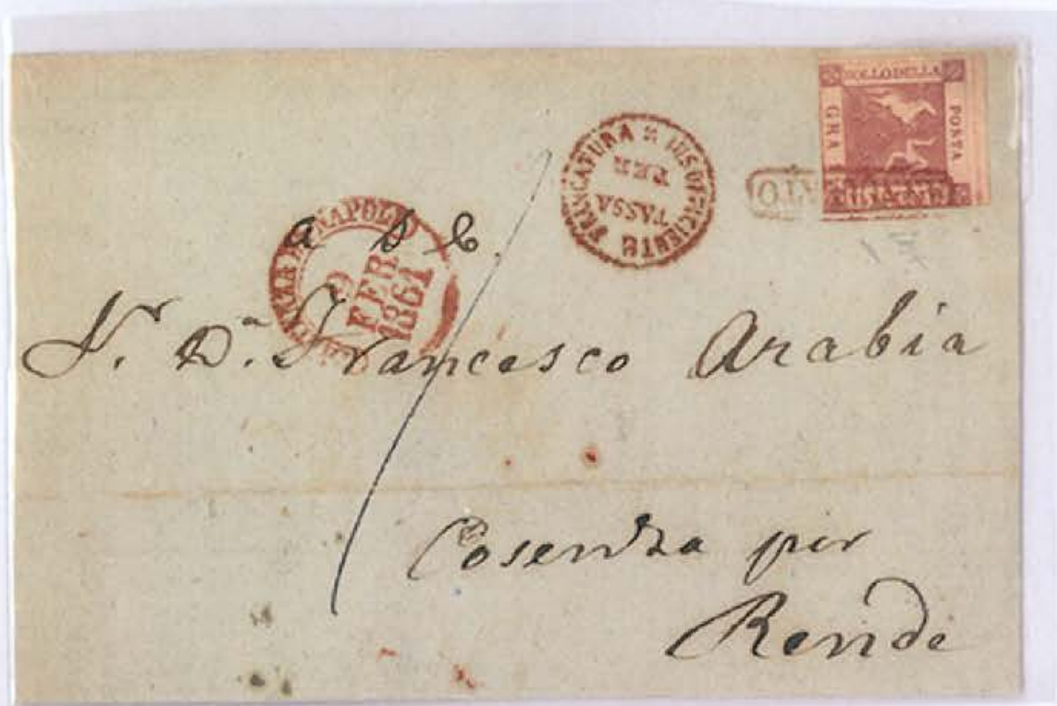 BOLLO DELLA
GRA
POSTA
FRANCATURA INSUFFICIENTE
PER
TASSA
NAPOLI
9
FEB
1861
a s e
Sr. Dn. Francesco Arabia
Cosenza per
Rende